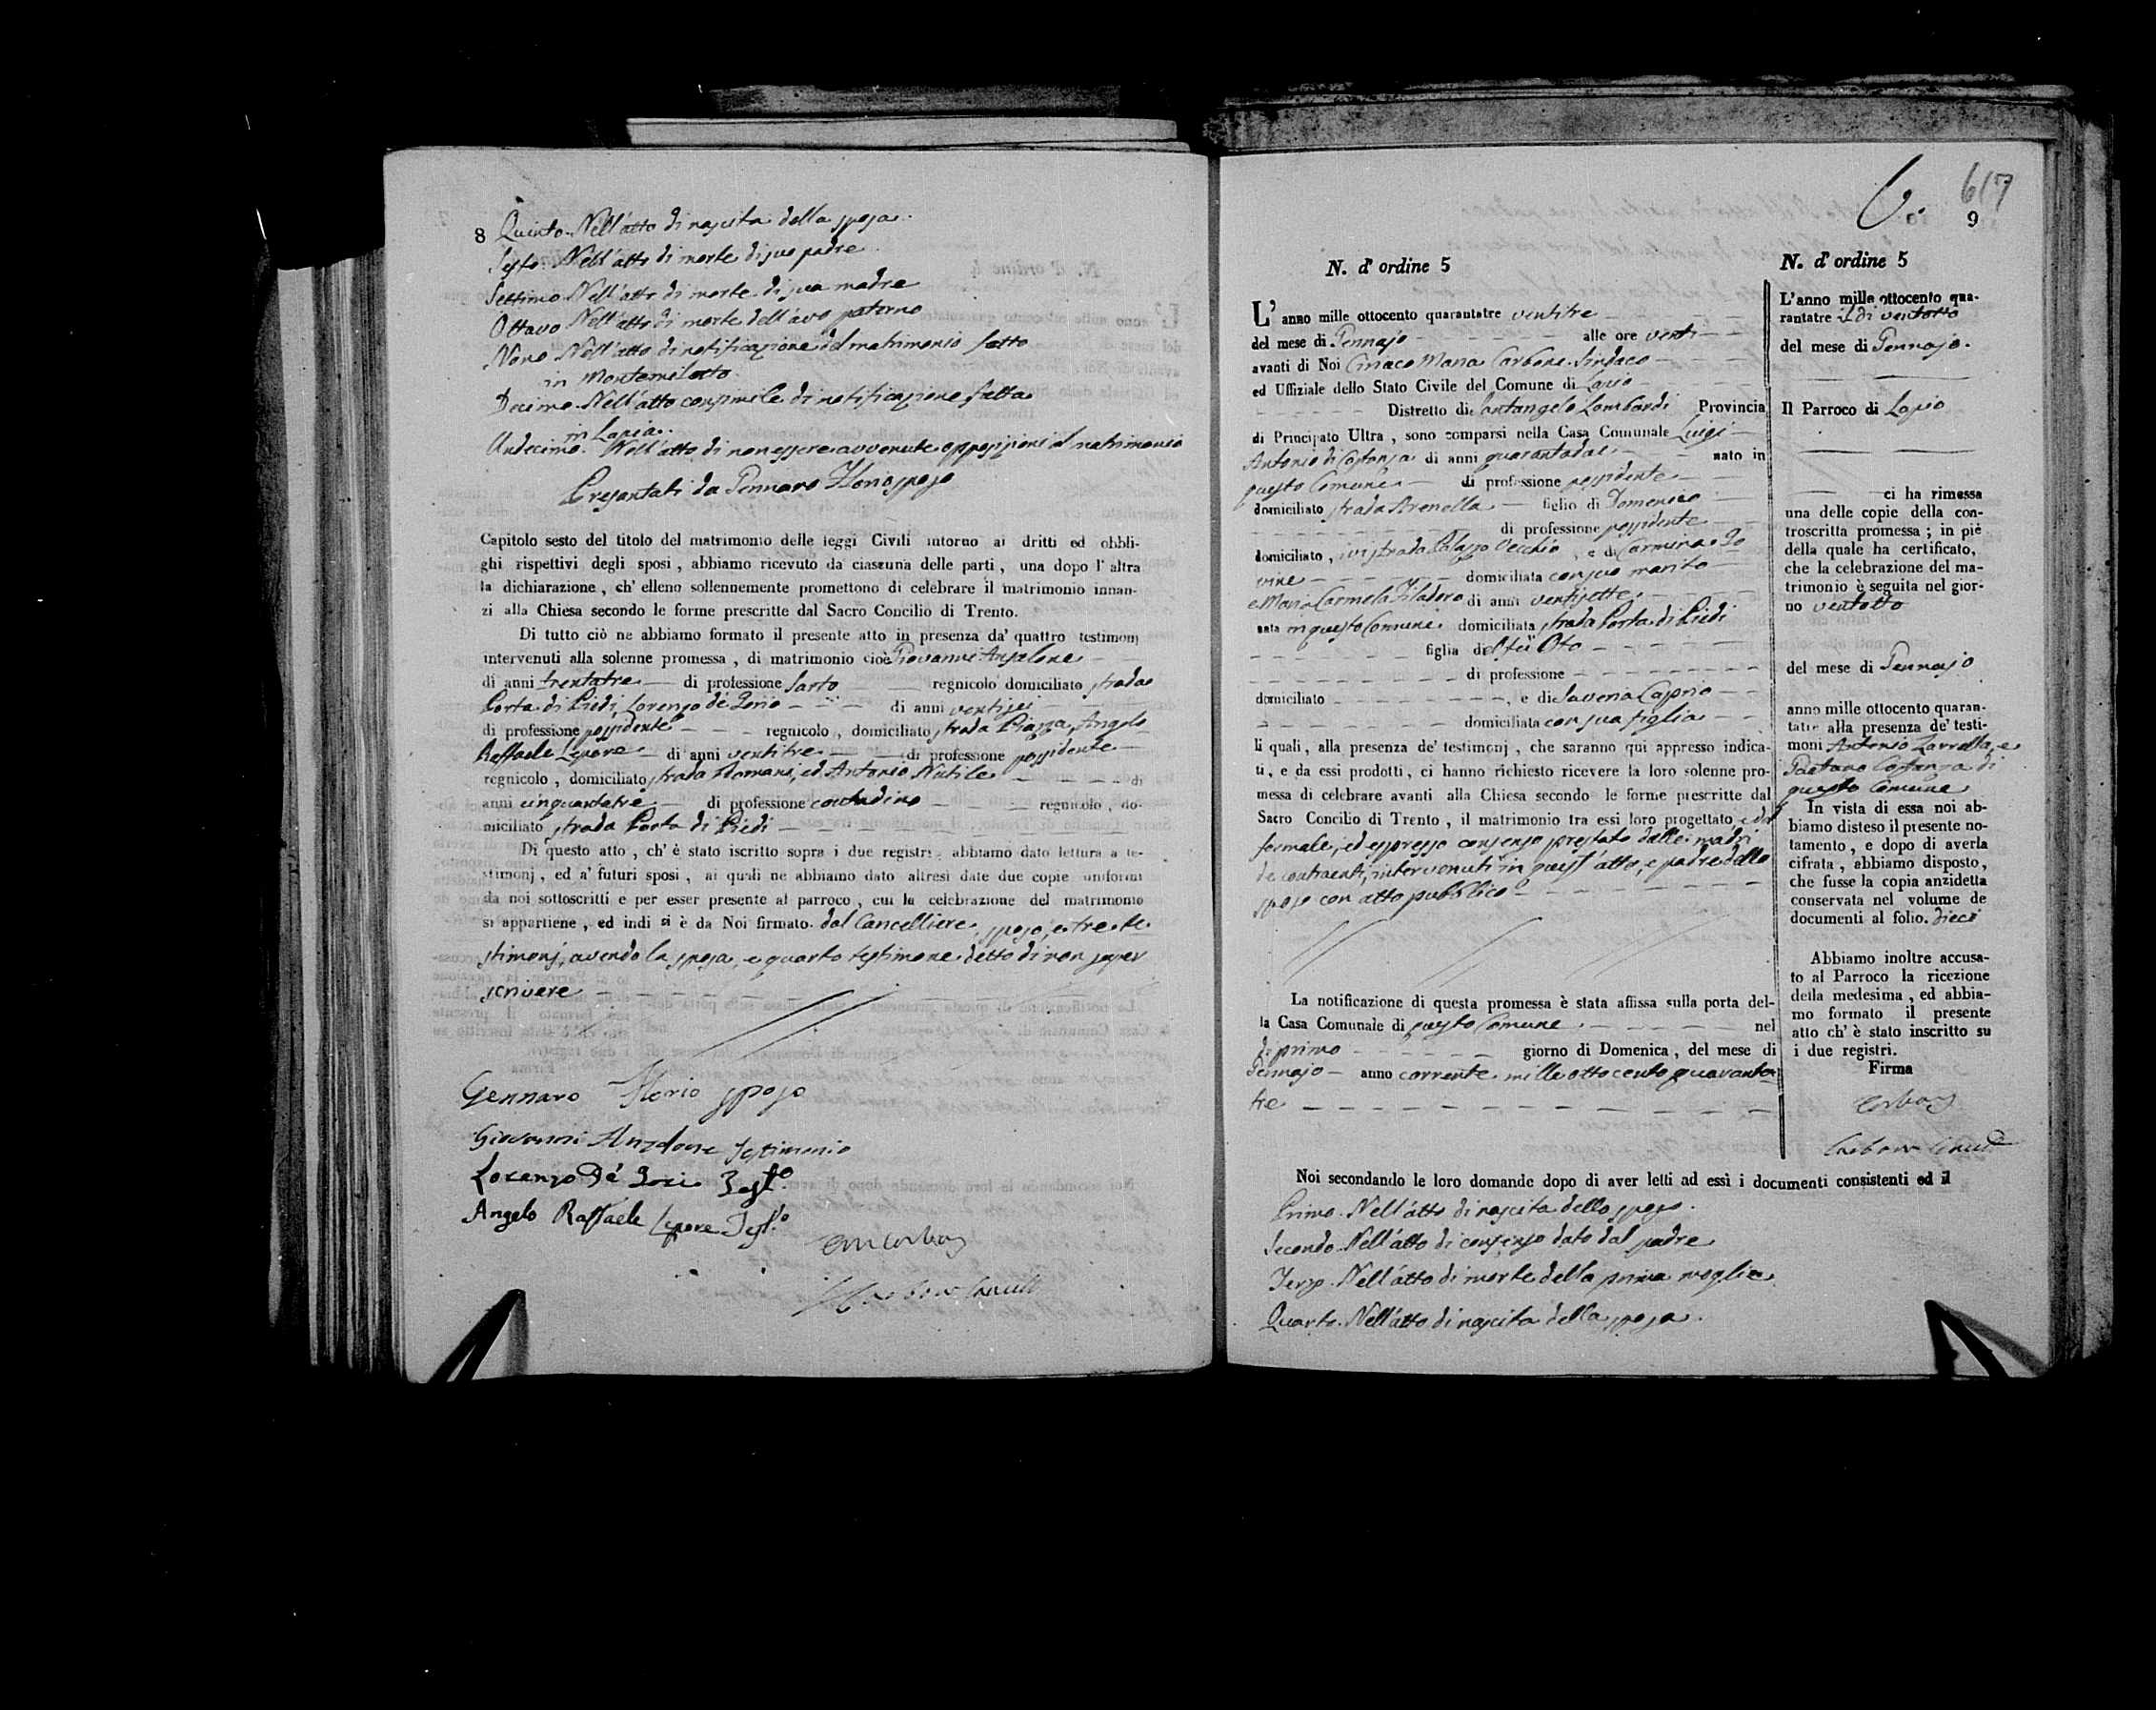 8
Quinto. Nell'atto di nascita della sposa.
Sesto. Nell'atto di morte di suo padre
Settimo. Nell'atto di morte di sua madre
Ottavo Nell'atto di morte dell'avo paterno
Nono Nell'atto di notificazione del matrimonio fatto
in Montemiletto.
Decimo. Nell'atto consimile di notificazione fatta
in Lapio.
Undecimo. Nell'atto di non essere avvenute opposizioni al matrimonio
Presentati da Gennaro Florio sposo
Capitolo sesto del titolo del matrimonio delle leggi Civili intorno ai dritti ed obbli-
ghi rispettivi degli sposi, abbiamo ricevuto da ciascuna delle parti, una dopo l'altra
la dichiarazione, ch'elleno sollennemente promettono di celebrare il matrimonio innan-
zi alla Chiesa secondo le forme prescritte dal Sacro Concilio di Trento.
Di tutto ciò ne abbiamo formato il presente atto in presenza da' quattro testimonj
intervenuti alla solenne promessa, di matrimonio cioè Giovanni Anzalone
di anni trentatre di professione Sarto regnicolo domiciliato strada
Porta di Piedi, Lorenzo de Iorio di anni ventisei
di professione possidente regnicolo, domiciliato strada Piazza, Angelo
Raffaele Lepore di anni ventitre di professione possidente
regnicolo, domiciliato strada Romani, ed Antonio Nutile di
anni cinquantatre di professione contadino regnicolo, do-
miciliato strada Porta di Piedi
Di questo atto, ch'è stato iscritto sopra i due registri, abbiamo dato lettura a te-
stimonj, ed a' futuri sposi, ai quali ne abbiamo dato altresì date due copie uniformi
da noi sottoscritti e per esser presente al parroco, cui la celebrazione del matrimonio
si appartiene, ed indi si è da Noi firmato. dal Cancelliere, sposo, e tre te-
stimonj, avendo la sposa, e quarto testimone detto di non saper
scrivere
Gennaro Florio sposo
Giovanni Anzalone Testimonio
Lorenzo De Iori Test.o
Angelo Raffaele Lepore Test.o
617
9
N. d'ordine 5
L'anno mille ottocento quarantatre ventitre
del mese di Gennajo alle ore venti
avanti di Noi Ciriaco Maria Carbone Sindaco
ed Uffiziale dello Stato Civile del Comune di Lapio
Distretto di Santangelo Lombardi Provincia
di Principato Ultra, sono comparsi nella Casa Comunale Luigi
Antonio di Costanza di anni quarantadue nato in
questo Comune di professione possidente
domiciliato strada Arenella figlio di Domenico
di professione possidente
domiciliato, ivi strada Palazzo Vecchio, e di Carmina Io
vine domiciliata con suo marito
e Maria Carmela Filadoro di anni ventisette
nata in questo Comune domiciliata strada Porta di Piedi
figlia di
di professione
domiciliato, e di Saveria Caprio
domiciliata con sua figlia
li quali, alla presenza de' testimonj, che saranno qui appresso indica-
ti, e da essi prodotti, ci hanno richiesto ricevere la loro solenne pro-
messa di celebrare avanti alla Chiesa secondo le forme prescritte dal
Sacro Concilio di Trento, il matrimonio tra essi loro progettato, e del
formale, ed espresso consenso prestato dalle madri
de contraenti, intervenuti in quest'atto, e padre dello
sposo con atto pubblico
La notificazione di questa promessa è stata affissa sulla porta del-
la Casa Comunale di questo Comune nel
dì primo giorno di Domenica, del mese di
Gennajo anno corrente mille ottocento quaranta-
tre
Noi secondando le loro domande dopo di aver letti ad essi i documenti consistenti ed il
Primo. Nell'atto di nascita dello sposo.
Secondo. Nell'atto di consenso dato dal padre
Terzo. Nell'atto di morte della prima moglie
Quarto. Nell'atto di nascita della sposa.
N. d'ordine 5
L'anno mille ottocento qua-
rantatre il dì ventotto
del mese di Gennajo.
Il Parroco di Lapio
ci ha rimessa
una delle copie della con-
troscritta promessa; in piè
della quale ha certificato,
che la celebrazione del ma-
trimonio è seguita nel gior-
no ventotto
del mese di Gennajo
anno mille ottocento quaran-
tatre alla presenza de' testi-
moni Antonio Zarrella, e
Gaetano Costanza di
questo Comune
In vista di essa noi ab-
biamo disteso il presente no-
tamento, e dopo di averla
cifrata, abbiamo disposto,
che fusse la copia anzidetta
conservata nel volume de
documenti al folio. dieci
Abbiamo inoltre accusa-
to al Parroco la ricezione
della medesima, ed abbia-
mo formato il presente
atto ch'è stato inscritto su
i due registri.
Firma